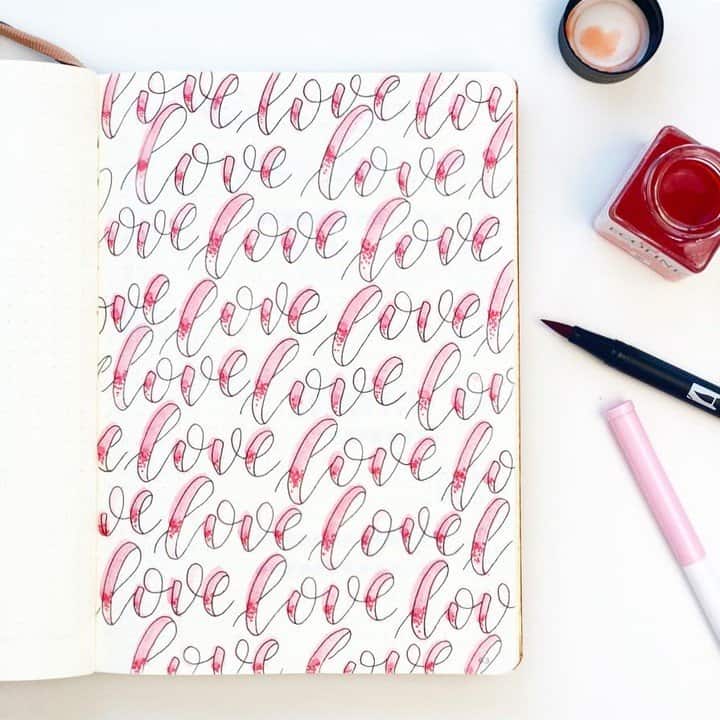 love love lov
love love l
ove love love
ove love love l
love love lov
e love love lo
ve love love l
love love lov
love love l